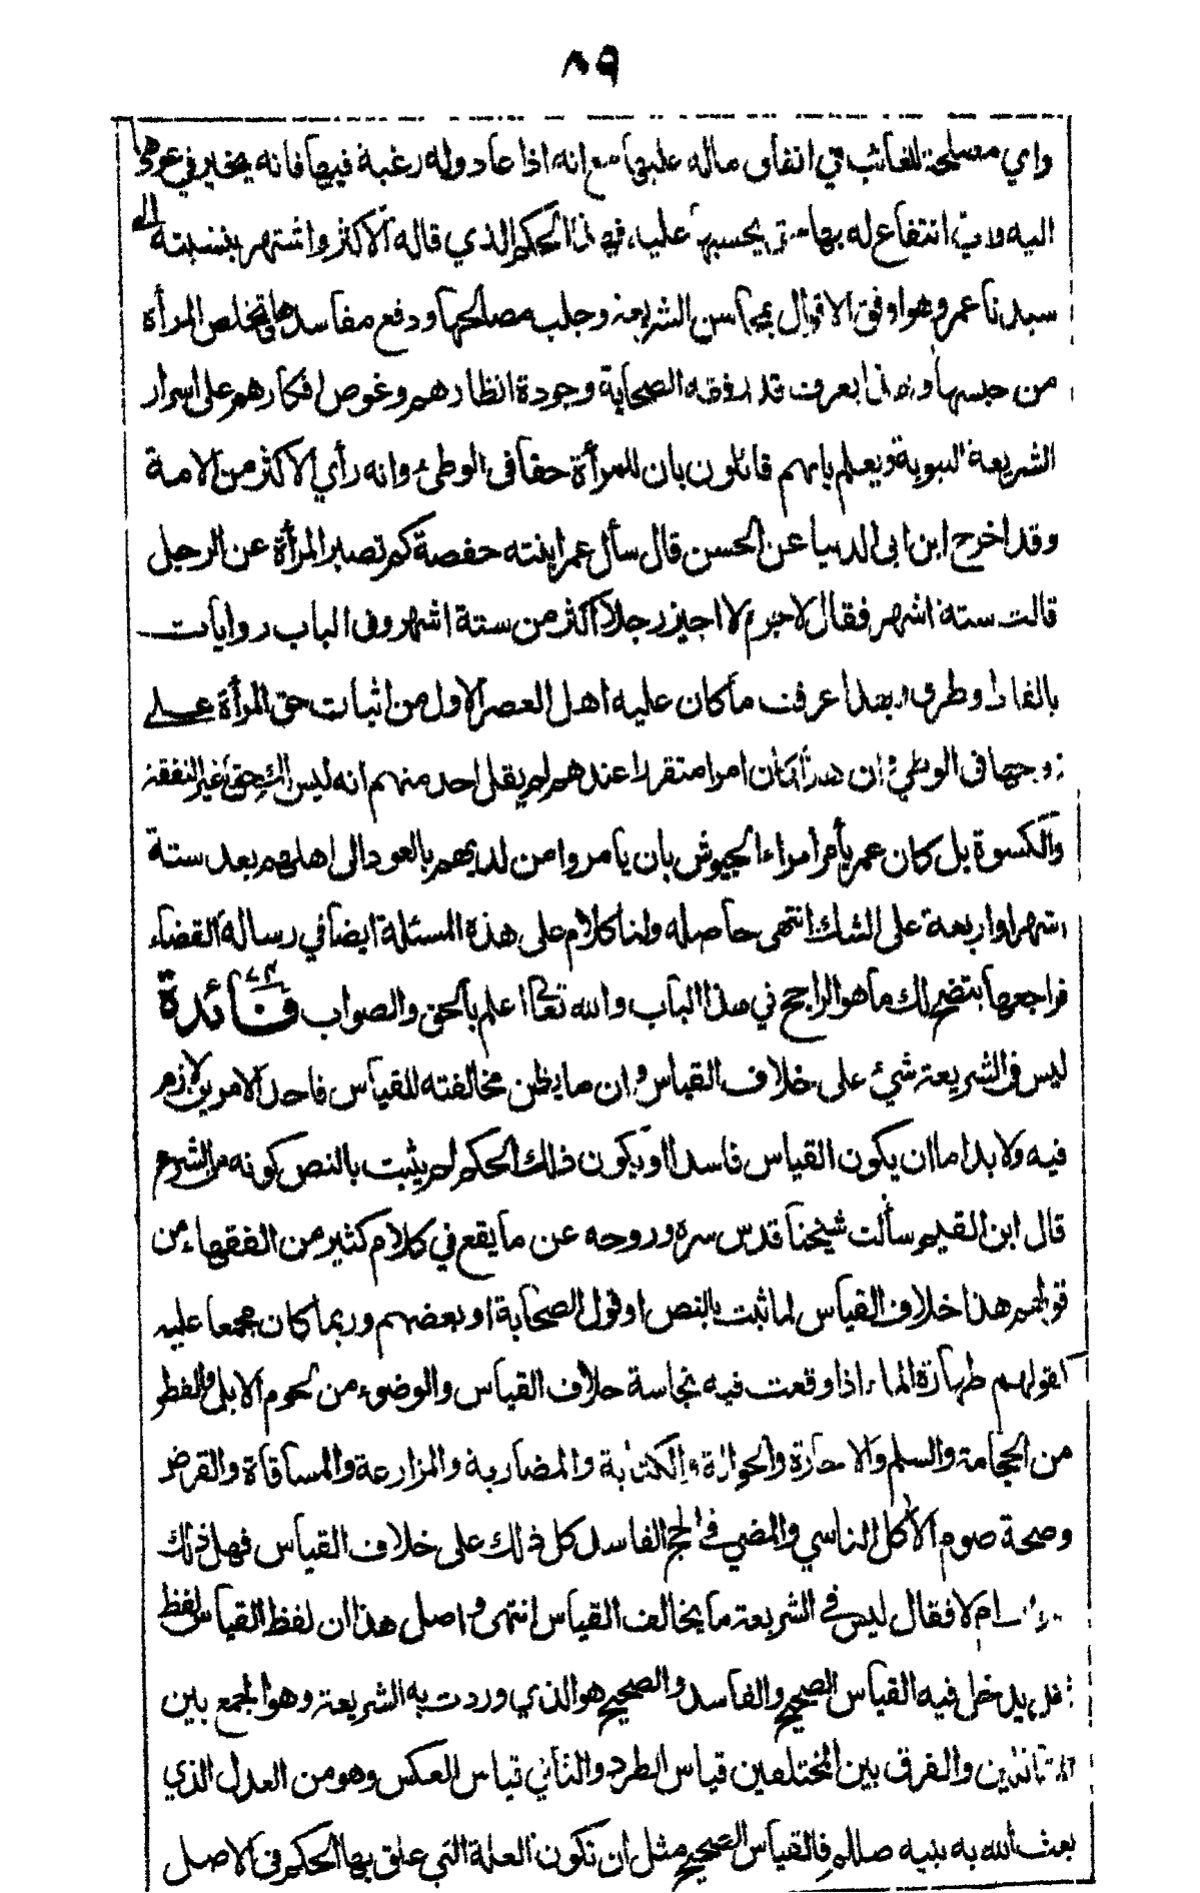 ٨٩
واي مصلحة للغائب في انفاق ماله عليها مع انه اذا عاد وله رغبة فيها فانه يخير في عودها
اليه واي انتفاع له بها حتى يحسبها عليه، فهذا الحكم الذي قاله الاكثر واشتهر بنسبته الى
سيدنا عمر وهو اوفق الاقوال بمحاسن الشريعة وجلب مصالحها ودفع مفاسدها في تخلص المرأة
من حبسها وبهذا يعرف قدر فقه الصحابة وجودة انظارهم وغوص افكارهم على اسرار
الشريعة النبوية ويعلم بانهم قائلون بان للمرأة حقا في الوطئ وانه رأي الاكثر من الامة
وقد اخرج ابن ابي الدنيا عن الحسن قال سأل عمر ابنته حفصة كم تصبر المرأة عن الرجل
قالت ستة اشهر فقال لا جرم لا اجيز رجلا اكثر من ستة اشهر وفى الباب روايات
بالفاظ وطرق وبهذا عرفت ما كان عليه اهل العصر الاول من اثبات حق المرأة على
زوجها فى الوطئ وان هذا كان امرا متقررا عندهم لم يقل احد منهم انه ليس لك حق غير النفقة
والكسوة بل كان عمر يأمر امراء الجيوش بان يامروا من لديهم بالعود الى اهلهم بعد ستة
اشهر او اربعة على الشك انتهى حاصله ولنا كلام على هذه المسئلة ايضا في رسالة القضاء
فراجعها يتضح لك ما هو الراجح في هذا الباب والله تعالى اعلم بالحق والصواب فائدة
ليس فى الشريعة شئ على خلاف القياس وان ما يظن مخالفته للقياس فاحد الامرين لازم
فيه ولا بد اما ان يكون القياس فاسدا او يكون ذلك الحكم لم يثبت بالنص كونه من الشرع
قال ابن القيم سألت شيخنا قدس سره وروحه عن ما يقع في كلام كثير من الفقهاء من
قولهم هذا خلاف القياس لما ثبت بالنص او قول الصحابة او بعضهم وربما كان مجمعا عليه
كقولهم طهارة الماء اذا وقعت فيه نجاسة خلاف القياس والوضوء من لحوم الابل والفطر
من الحجامة والسلم والاجارة والحوالة والكتابة والمضاربة والمزارعة والمساقاة والقرض
وصحة صوم الآكل الناسي والمضي في الحج الفاسد كل ذلك على خلاف القياس فهل ذلك
ام لا فقال ليس في الشريعة ما يخالف القياس انتهى واصل هذا ان لفظ القياس لفظ
مجمل يدخل فيه القياس الصحيح والفاسد والصحيح هو الذي وردت به الشريعة وهو الجمع بين
المتماثلين والفرق بين المختلفين قياس الطرد والثاني قياس العكس وهو من العدل الذي
بعث الله به نبيه صللم فالقياس الصحيح مثل ان تكون العلة التي علق بها الحكم فى الاصل